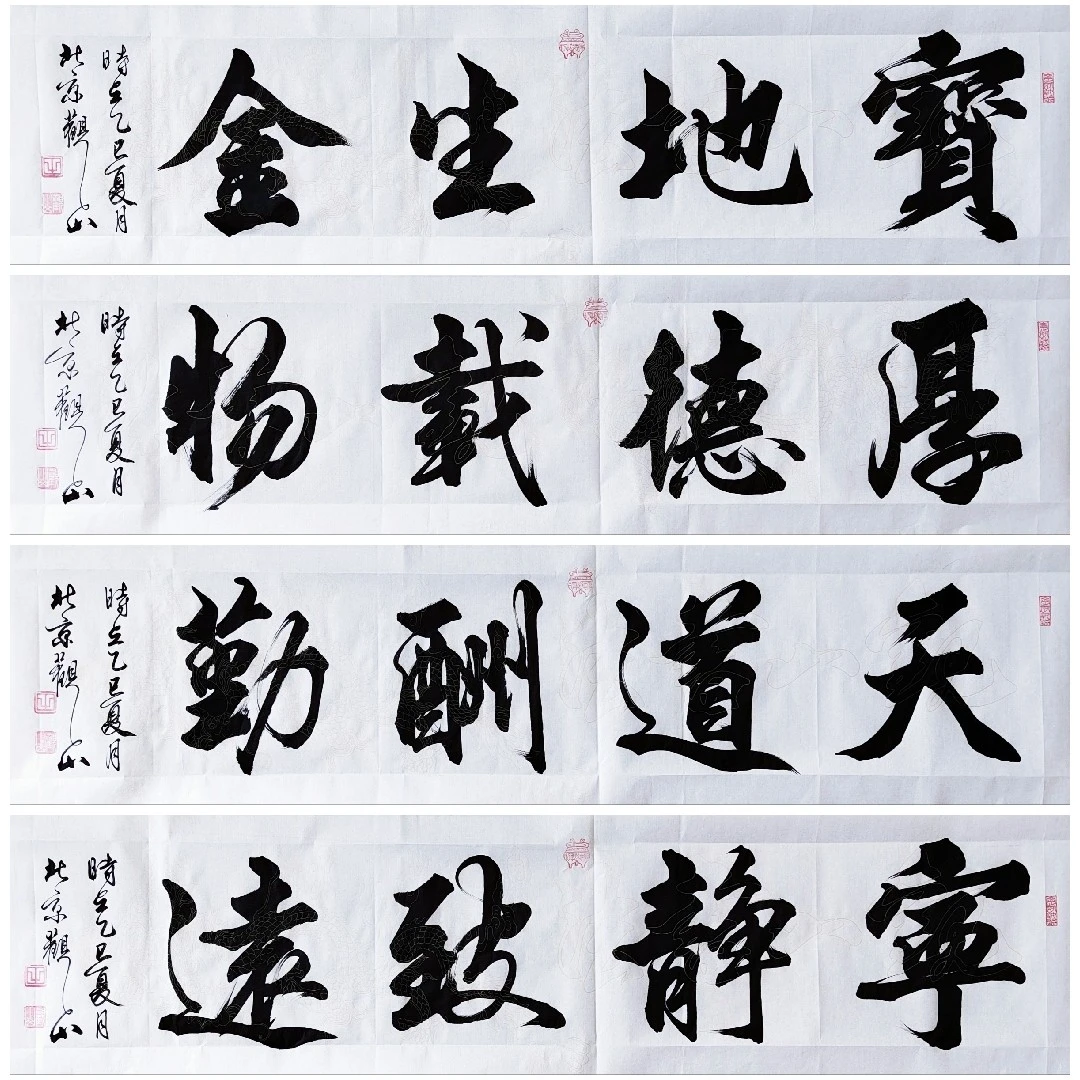 寶地生金
時在乙巳夏月
北京觀山
厚德載物
時在乙巳夏月
北京觀山
天道酬勤
時在乙巳夏月
北京觀山
寧靜致遠
時在乙巳夏月
北京觀山